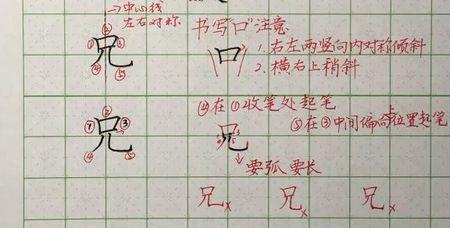 →中心线
左右对称
书写"口"注意
兄
口
1.右左两竖向内对称倾斜
2.横右上稍斜
① ② ③ ④ ⑤
④在①收笔处起笔
兄
兄
⑤在③中间偏上位置起笔
① ② ③ ④ ⑤
→要弧 要长
兄× 兄× 兄×